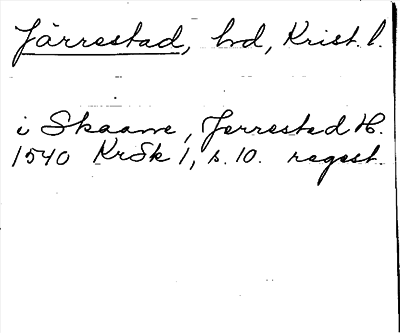 Järrestad, hd, Krist. l.
i Skaane, Jerrestad H.
1540 KrSk 1, s. 10. regest.